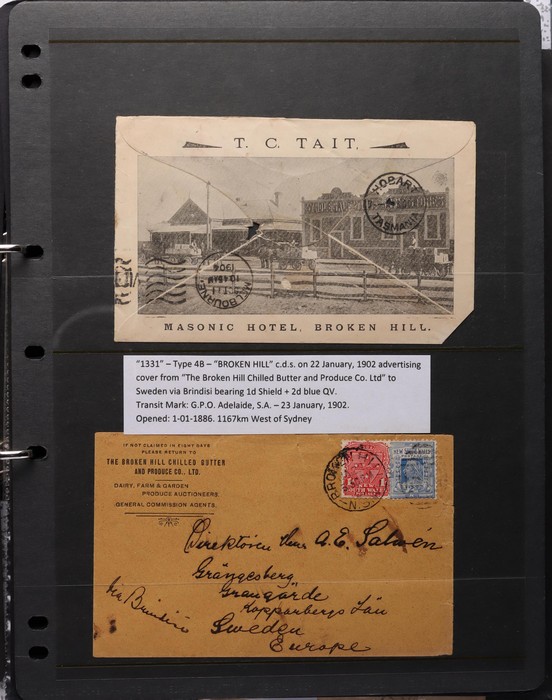 T. C. TAIT.
HOBART
TASMANIA
MELBOURNE
10 45 AM
OCT 11
1904
MASONIC HOTEL, BROKEN HILL.
"1331" – Type 4B – "BROKEN HILL" c.d.s. on 22 January, 1902 advertising
cover from "The Broken Hill Chilled Butter and Produce Co. Ltd" to
Sweden via Brindisi bearing 1d Shield + 2d blue QV.
Transit Mark: G.P.O. Adelaide, S.A. – 23 January, 1902.
Opened: 1-01-1886. 1167km West of Sydney
IF NOT CLAIMED IN EIGHT DAYS
PLEASE RETURN TO
THE BROKEN HILL CHILLED BUTTER
AND PRODUCE CO., LTD.
DAIRY, FARM & GARDEN
PRODUCE AUCTIONEERS
GENERAL COMMISSION AGENTS.
BROKEN HILL
N.S.
Direktören Herr A. E. Salwén
Grängesberg
Grangärde
Kopparbergs Län
Via Brindisi
Sweden
Europe